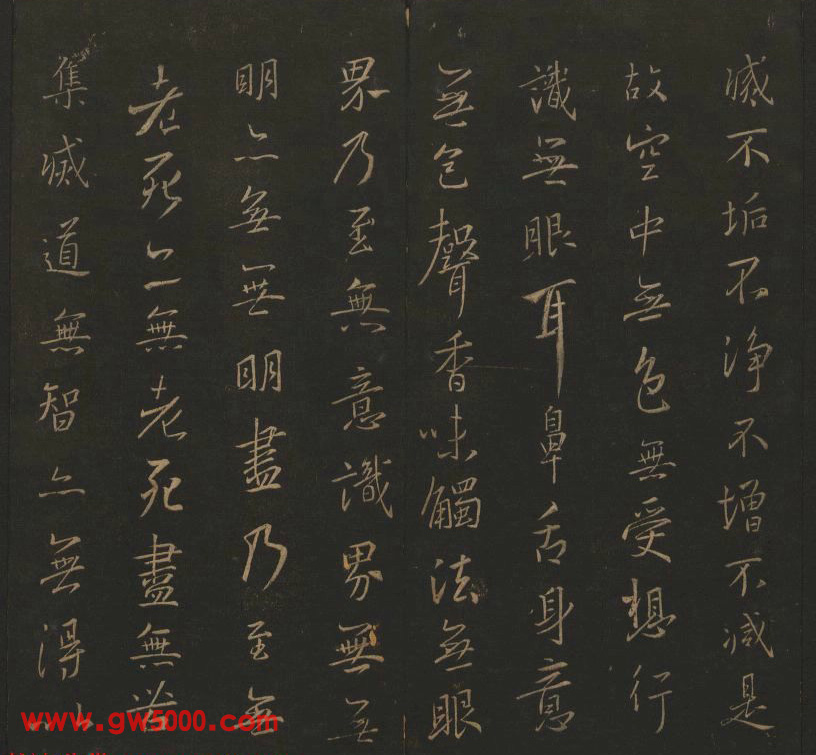 滅不垢不淨不增不減是
故空中無色無受想行
識無眼耳鼻舌身意
無色聲香味觸法無眼
界乃至無意識界無無
明亦無無明盡乃至無
老死亦無老死盡無苦
集滅道無智亦無得以
www.gw5000.com